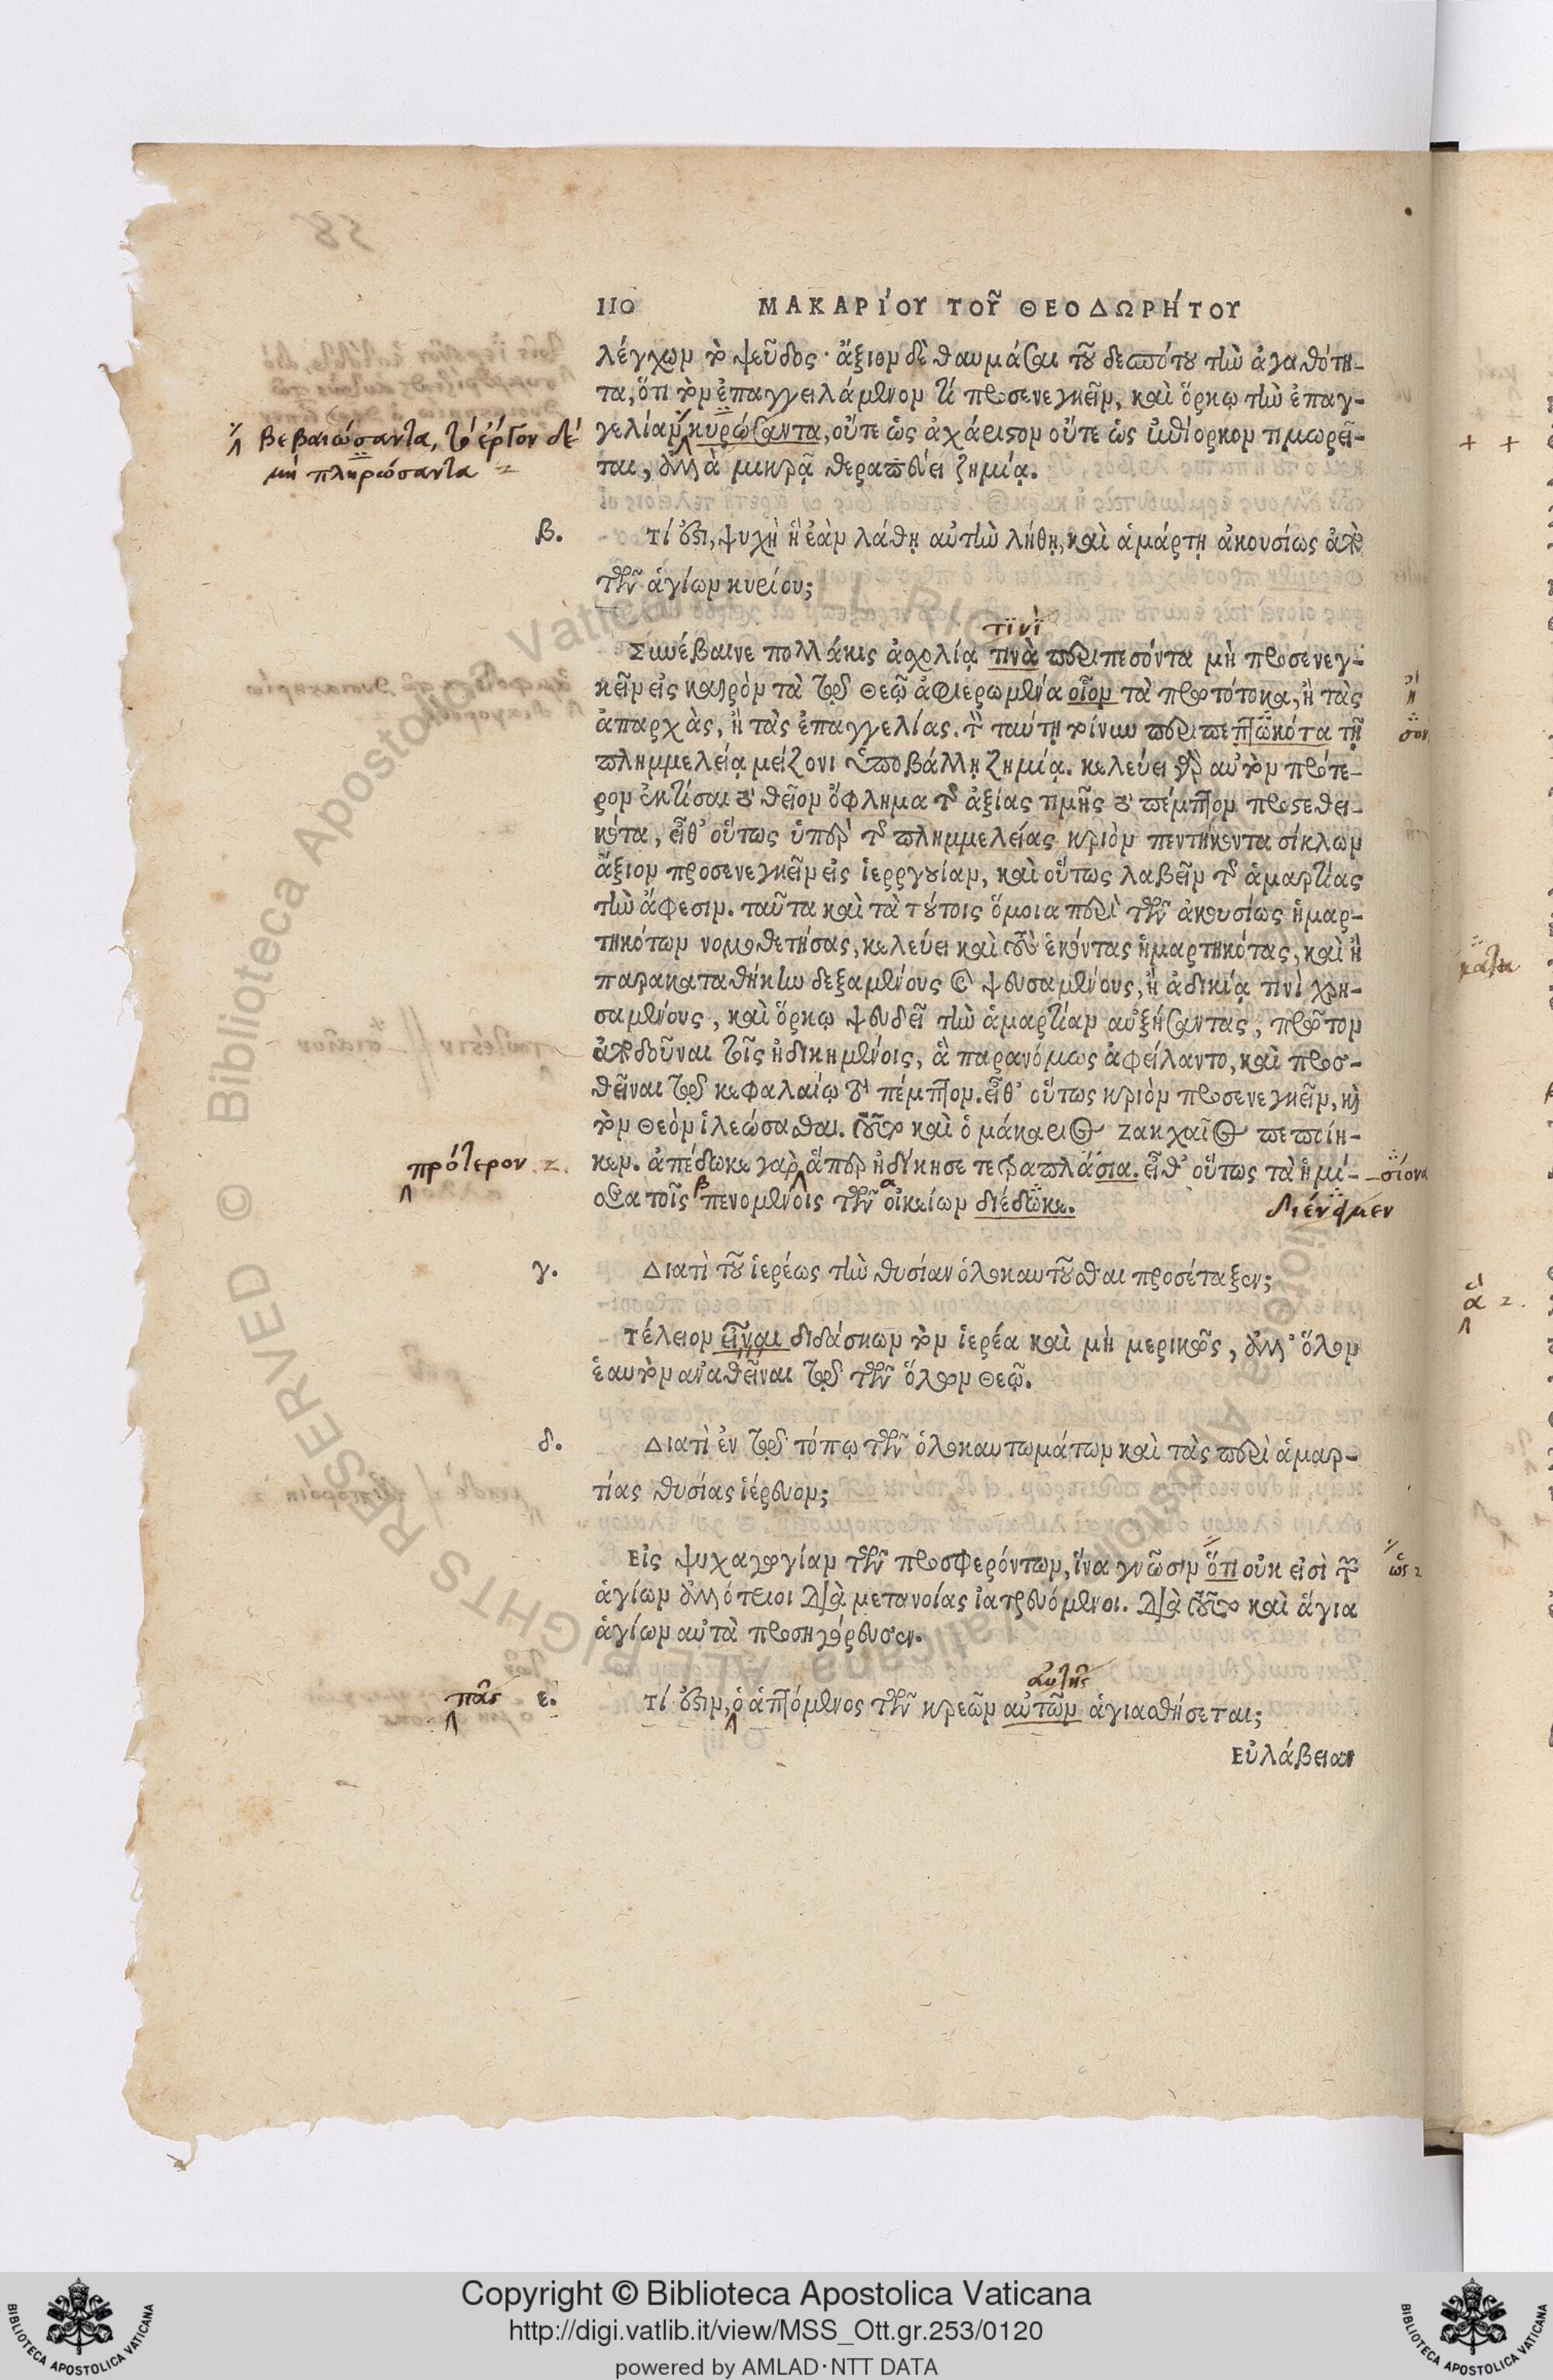 110 ΜΑΚΑΡΊΟΥ ΤΟΥ͂ ΘΕΟΔΩΡΉΤΟΥ
λέγχων τὸ ψεῦδος· ἄξιον δὲ θαυμάσαι τοῦ δεσπότου τὴν ἀγαθότη-
τα, ὅτι τὸν ἐπαγγειλάμενον τὶ προσενεγκεῖν, καὶ ὅρκῳ τὴν ἐπαγ-
γελίαν κυρώσαντα, οὔτε ὡς ἀχάριστον οὔτε ὡς ἐπίορκον τιμωρεῖ-
βεβαιώσαντα, τὸ ἔργον δέ
μὴ πληρώσαντα
ται, ἀλλὰ μικρᾷ θεραπεύει ζημίᾳ.
β. τί ἐστι, ψυχὴ ἣ ἐὰν λάθῃ αὐτὴν λήθῃ, καὶ ἁμάρτῃ ἀκουσίως ἀπὸ
τῶν ἁγίων κυρίου;
τινὶ
Συνέβαινε πολλάκις ἀσχολίᾳ τινὰ περιπεσόντα μὴ προσενεγ-
κεῖν εἰς καιρὸν τὰ τῷ θεῷ ἀφιερωμένα οἷον τὰ πρωτότοκα, ἢ τὰς
ἀπαρχὰς, ἢ τὰς ἐπαγγελίας. τὸν ταύτῃ τοίνυν περιπεπτωκότα τῇ
πλημμελείᾳ μείζονι ὑποβάλλῃ ζημίᾳ. κελεύει γὰρ αὐτὸν πρότε-
ρον ἐκτίσαι τὸ θεῖον ὄφλημα τῆς ἀξίας τιμῆς τὸ πέμπτον προστεθει-
κότα, εἶθ' οὕτως ὑπὲρ τῆς πλημμελείας κριὸν πεντήκοντα σίκλων
ἄξιον προσενεγκεῖν εἰς ἱερουργίαν, καὶ οὕτως λαβεῖν τῆς ἁμαρτίας
τὴν ἄφεσιν. ταῦτα καὶ τὰ τούτοις ὅμοια περὶ τῶν ἀκουσίως ἡμαρ-
τηκότων νομοθετήσας, κελεύει καὶ τοὺς ἑκόντας ἡμαρτηκότας, καὶ ἢ
παρακαταθήκην δεξαμένους καὶ ψευσαμένους, ἢ ἀδικίᾳ τινὶ χρη-
σαμένους, καὶ ὅρκῳ ψευδεῖ τὴν ἁμαρτίαν αὐξήσαντας, πρῶτον
ἀποδοῦναι τοῖς ἠδικημένοις, ἃ παρανόμως ἀφείλαντο, καὶ προσ-
θεῖναι τῷ κεφαλαίῳ τὸ πέμπτον. εἶθ' οὕτως κριὸν προσενεγκεῖν, καὶ
τὸν θεὸν ἱλεώσασθαι. τοῦτο καὶ ὁ μακάριος Ζακχαῖος πεποίη-
πρότερον
κεν. ἀπέδωκε γὰρ ἅπερ ἠδίκησε τετραπλάσια. εἶθ' οὕτως τὰ ἡμί-
σεα τοῖς πενομένοις τῶν οἰκείων διέδωκε.
διένειμεν
γ. Διατὶ τοῦ ἱερέως τὴν θυσίαν ὁλοκαυτοῦσθαι προσέταξεν;
Τέλειον εἶναι διδάσκων τὸν ἱερέα καὶ μὴ μερικῶς, ἀλλ' ὅλον
ἑαυτὸν αναθεῖναι τῷ τῶν ὅλων θεῷ.
δ. Διατὶ ἐν τῷ τόπῳ τῶν ὁλοκαυτωμάτων καὶ τὰς περὶ ἁμαρ-
τίας θυσίας ἱέρευον;
Εἰς ψυχαγωγίαν τῶν προσφερόντων, ἵνα γνῶσιν ὅτι οὐκ εἰσὶ τῶν
ὡς
ἁγίων ἀλλότριοι διὰ μετανοίας ἰατρευόμενοι. διὰ τοῦτο καὶ ἅγια
ἁγίων αὐτὰ προσηγόρευσεν.
αὐτῆς
πᾶς
ε. τί ἐστιν, ὁ ἁπτόμενος τῶν κρεῶν αὐτῶν ἁγιασθήσεται;
Εὐλάβειαν
Copyright © Biblioteca Apostolica Vaticana
http://digi.vatlib.it/view/MSS_Ott.gr.253/0120
powered by AMLAD·NTT DATA
BIBLIOTECA APOSTOLICA VATICANA
BIBLIOTECA APOSTOLICA VATICANA